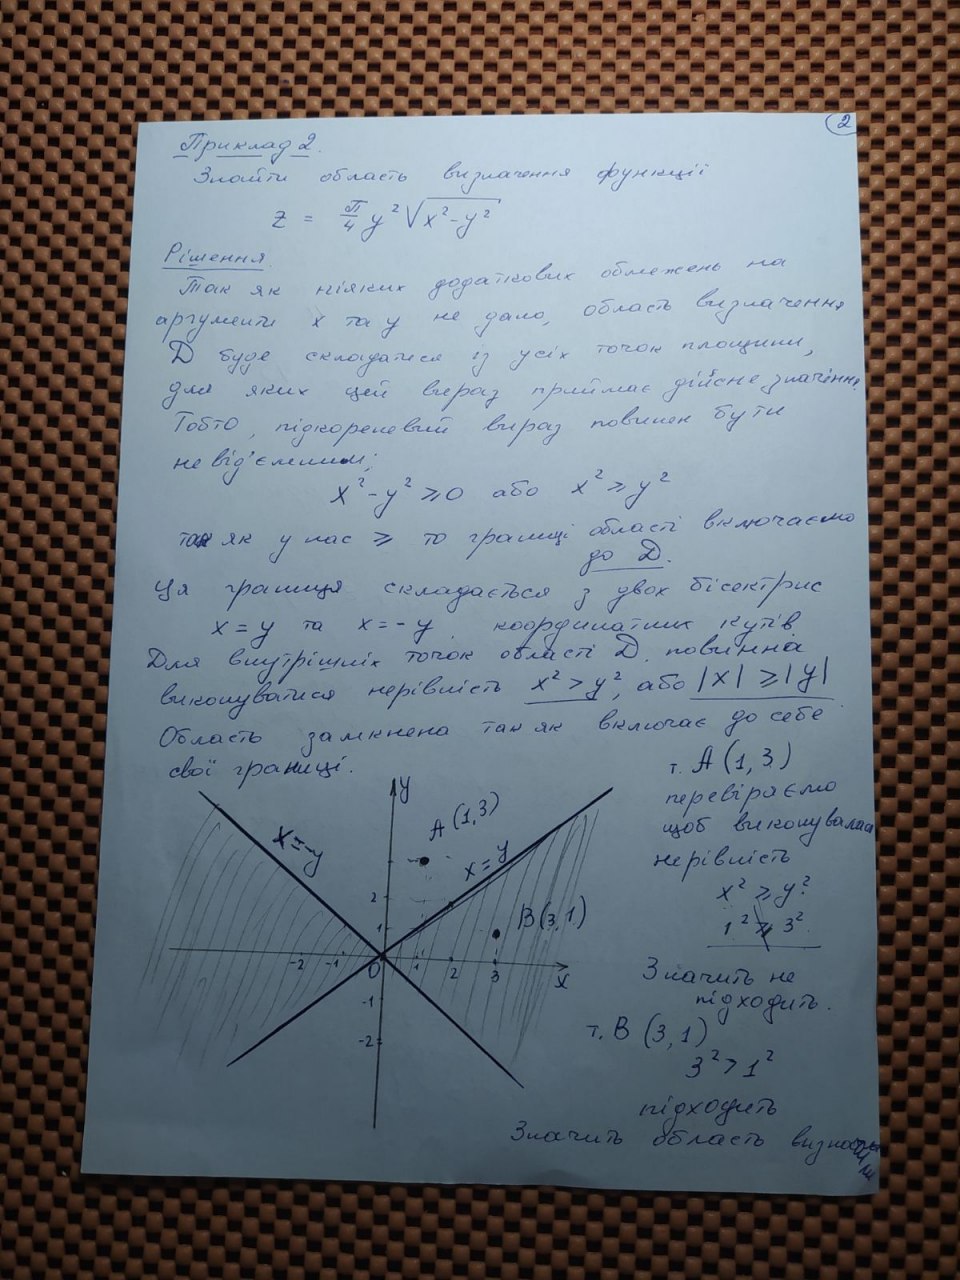 2
Приклад 2.
Знайти область визначення функції
z = π/4 y² √(x²-y²)
Рішення
Так як ніяких додаткових обмежень на
аргументи x та y не дано, область визначення
D буде складатися із усіх точок площини,
для яких цей вираз приймає дійсне значення
Тобто, підкореневий вираз повинен бути
невід'ємним;
x²-y² ⩾ 0 або x² ⩾ y²
так як у нас ⩾ то границі області включаємо
до D.
Ця границя складається з двох бісектрис
x = y та x = -y координатних кутів
Для внутрішніх точок області D повинна
виконуватися нерівність x² > y², або |x| ⩾ |y|
Область замкнена так як включає до себе
свої границі.
т. A (1, 3)
перевіряємо
щоб виконувалась
нерівність
x² ⩾ y²
1² ⩾̸ 3²
Значить не
підходить.
т. B (3, 1)
3² > 1²
підходить
Значить область
y
A (1, 3)
x = -y
x = y
2
B (3, 1)
1
-2 -1 0 1 2 3 x
-1
-2